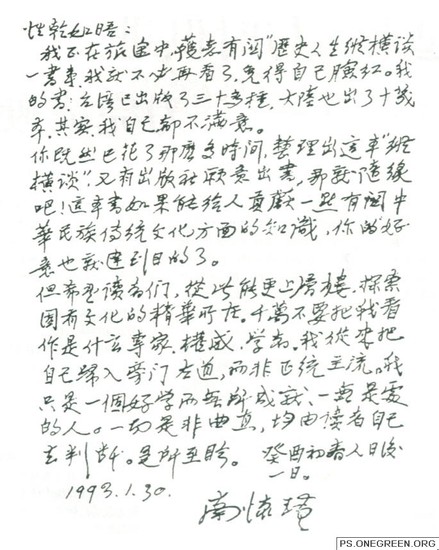 性乾如晤：
我正在旅途中，获悉有闗"歷史人生縱横谈"
一書事，我就不必再看了，免得自己臉红。我
的書，台湾已出版了三十多種，大陸也出了十幾
本，其实，我自己都不满意。
你既然已花了那麽多时间，整理出这本"纵
横谈"，又有出版社願意出書，那就隨缘
吧！这本書如果能给人貢獻一点有闗中
華民族传统文化方面的知識，你的好
意也就達到目的了。
但希望读者们，從此能更上層樓，探索
固有文化的精華所在。千萬不要把我看
作是什么專家、權威、学者。我從來把
自己归入旁门左道，而非正统主流。我
只是一個好学而無所成就、一無是處
的人。一切是非曲直，均由读者自己
去判断。是所至盼。 癸酉初春人日後
一日。
1993.1.30. 南怀瑾
PS.ONEGREEN.ORG